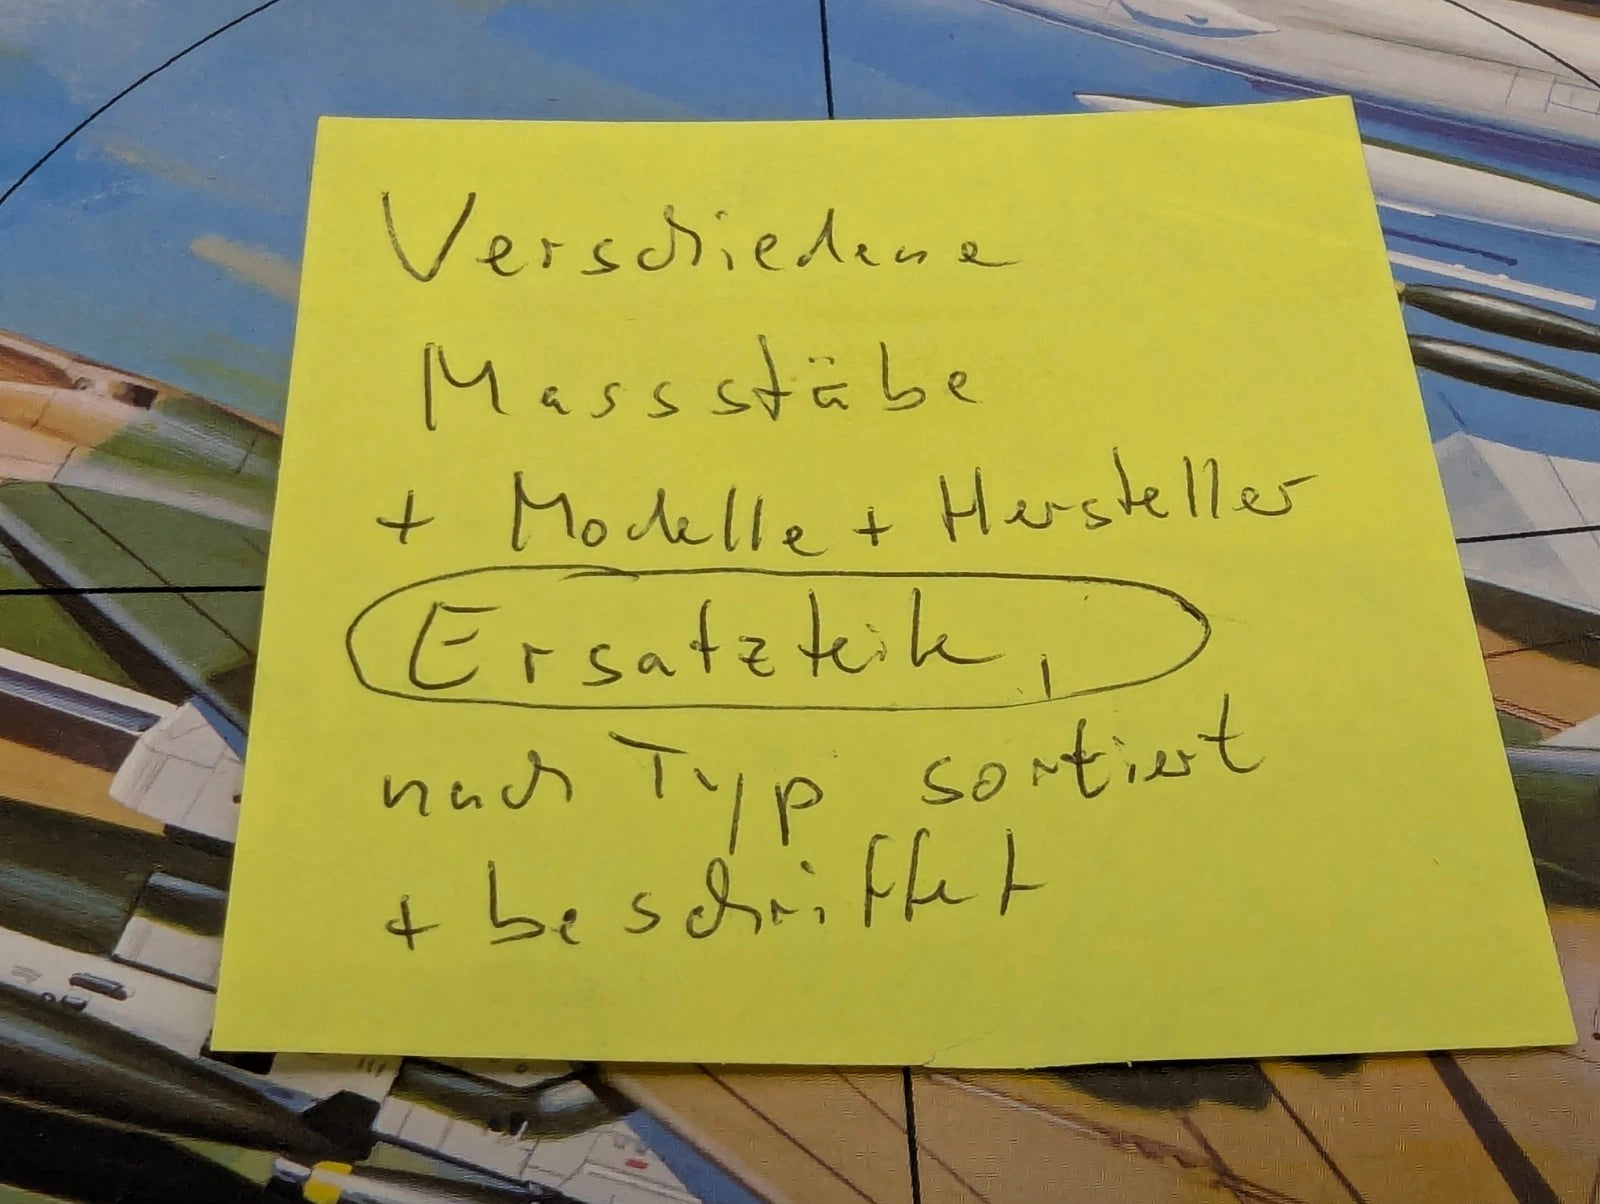 Verschiedene
Massstäbe
+ Modelle + Hersteller
Ersatzteile,
nach Typ sortiert
+ beschriftet